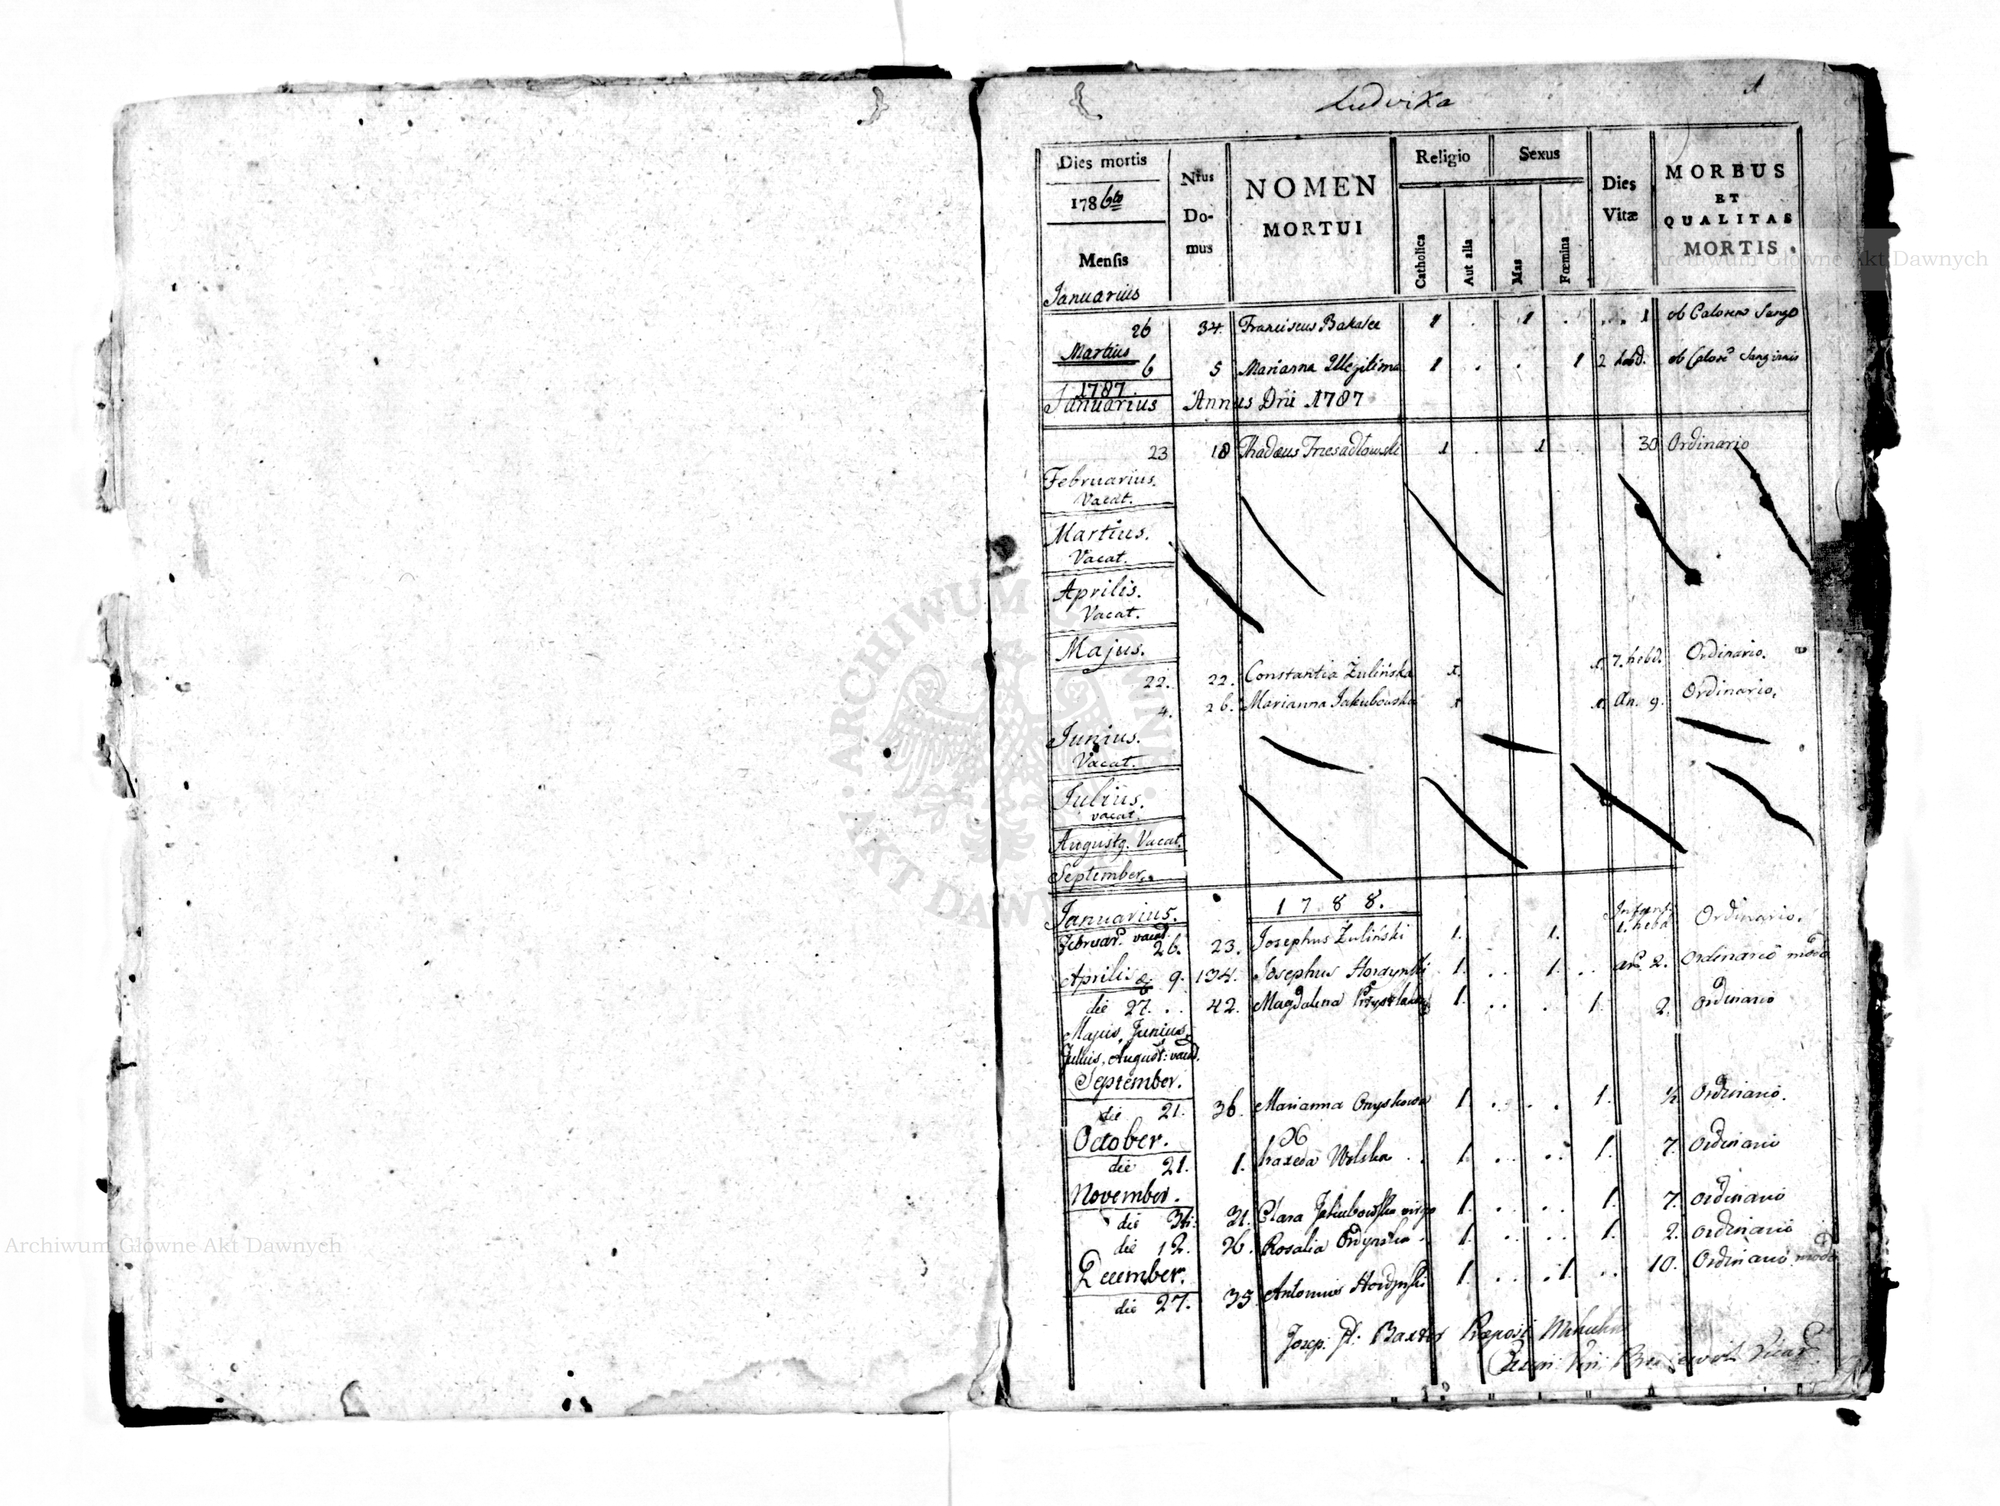 Ludvika 1
Dies mortis
1786to
Mensis
Januarius
Nrus
Do-
mus
NOMEN
MORTUI
Religio
Catholica
Aut alla
Sexus
Mas
Fœmina
Dies
Vitæ
MORBUS
ET
QUALITAS
MORTIS.
26 34. Franciscus 1 . 1 . . . 1 ob Calorem
Martius
6 5 Marianna Illegitima 1 . . 1 2 hebd. ob
1787
Januarius Annus Dni 1787
23 18 Thadæus Trzesadłowski 1 . 1 . 30 Ordinario
Februarius.
Vacat.
Martius.
Vacat.
Aprilis.
Vacat.
Majus.
22. 22. Constantia Żulińska 1. 1. 7. hebd. Ordinario.
4. 26. Marianna Jakubowska 1 1. An. 9. Ordinario.
Junius.
Vacat.
Julius.
vacat.
Vacat.
September.
Januarius. 1788.
Februar. vacat
26. 23. Josephus Żuliński 1. 1. 1. hebd Ordinario.
Aprilis 9. 134. Josephus Hordyński 1. . . 1. . . 2. Ordinario modo
die 27. . . 42. Magdalena 1. . . . 1. 2. Ordinario
Majus, Junius,
Julius, August: vacat.
September.
die 21. 36. Marianna 1. . . . 1. ½ Ordinario.
October.
die 21. 1. Wilska . . 1. . . . . 1. 7. Ordinario
November.
die 31. Clara Jakubowska virgo 1. . . . . 1. 7. Ordinario
die 12. 26. Rosalia Ordynska . 1. . . . . 1. 2. Ordinario
December.
die 27. 35 Antonius Hordyński 1. . . . 1. . . 10. Ordinario modo
Josep.
Archiwum Główne Akt Dawnych
Archiwum Główne Akt Dawnych
ARCHIWUM GŁÓWNE AKT DAWNYCH